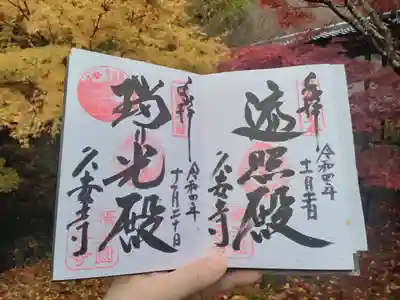 奉拝
遍照殿
令和四年
十一月二十日
久安寺
奉拝
瑞光殿
令和四年
十一月二十日
久安寺